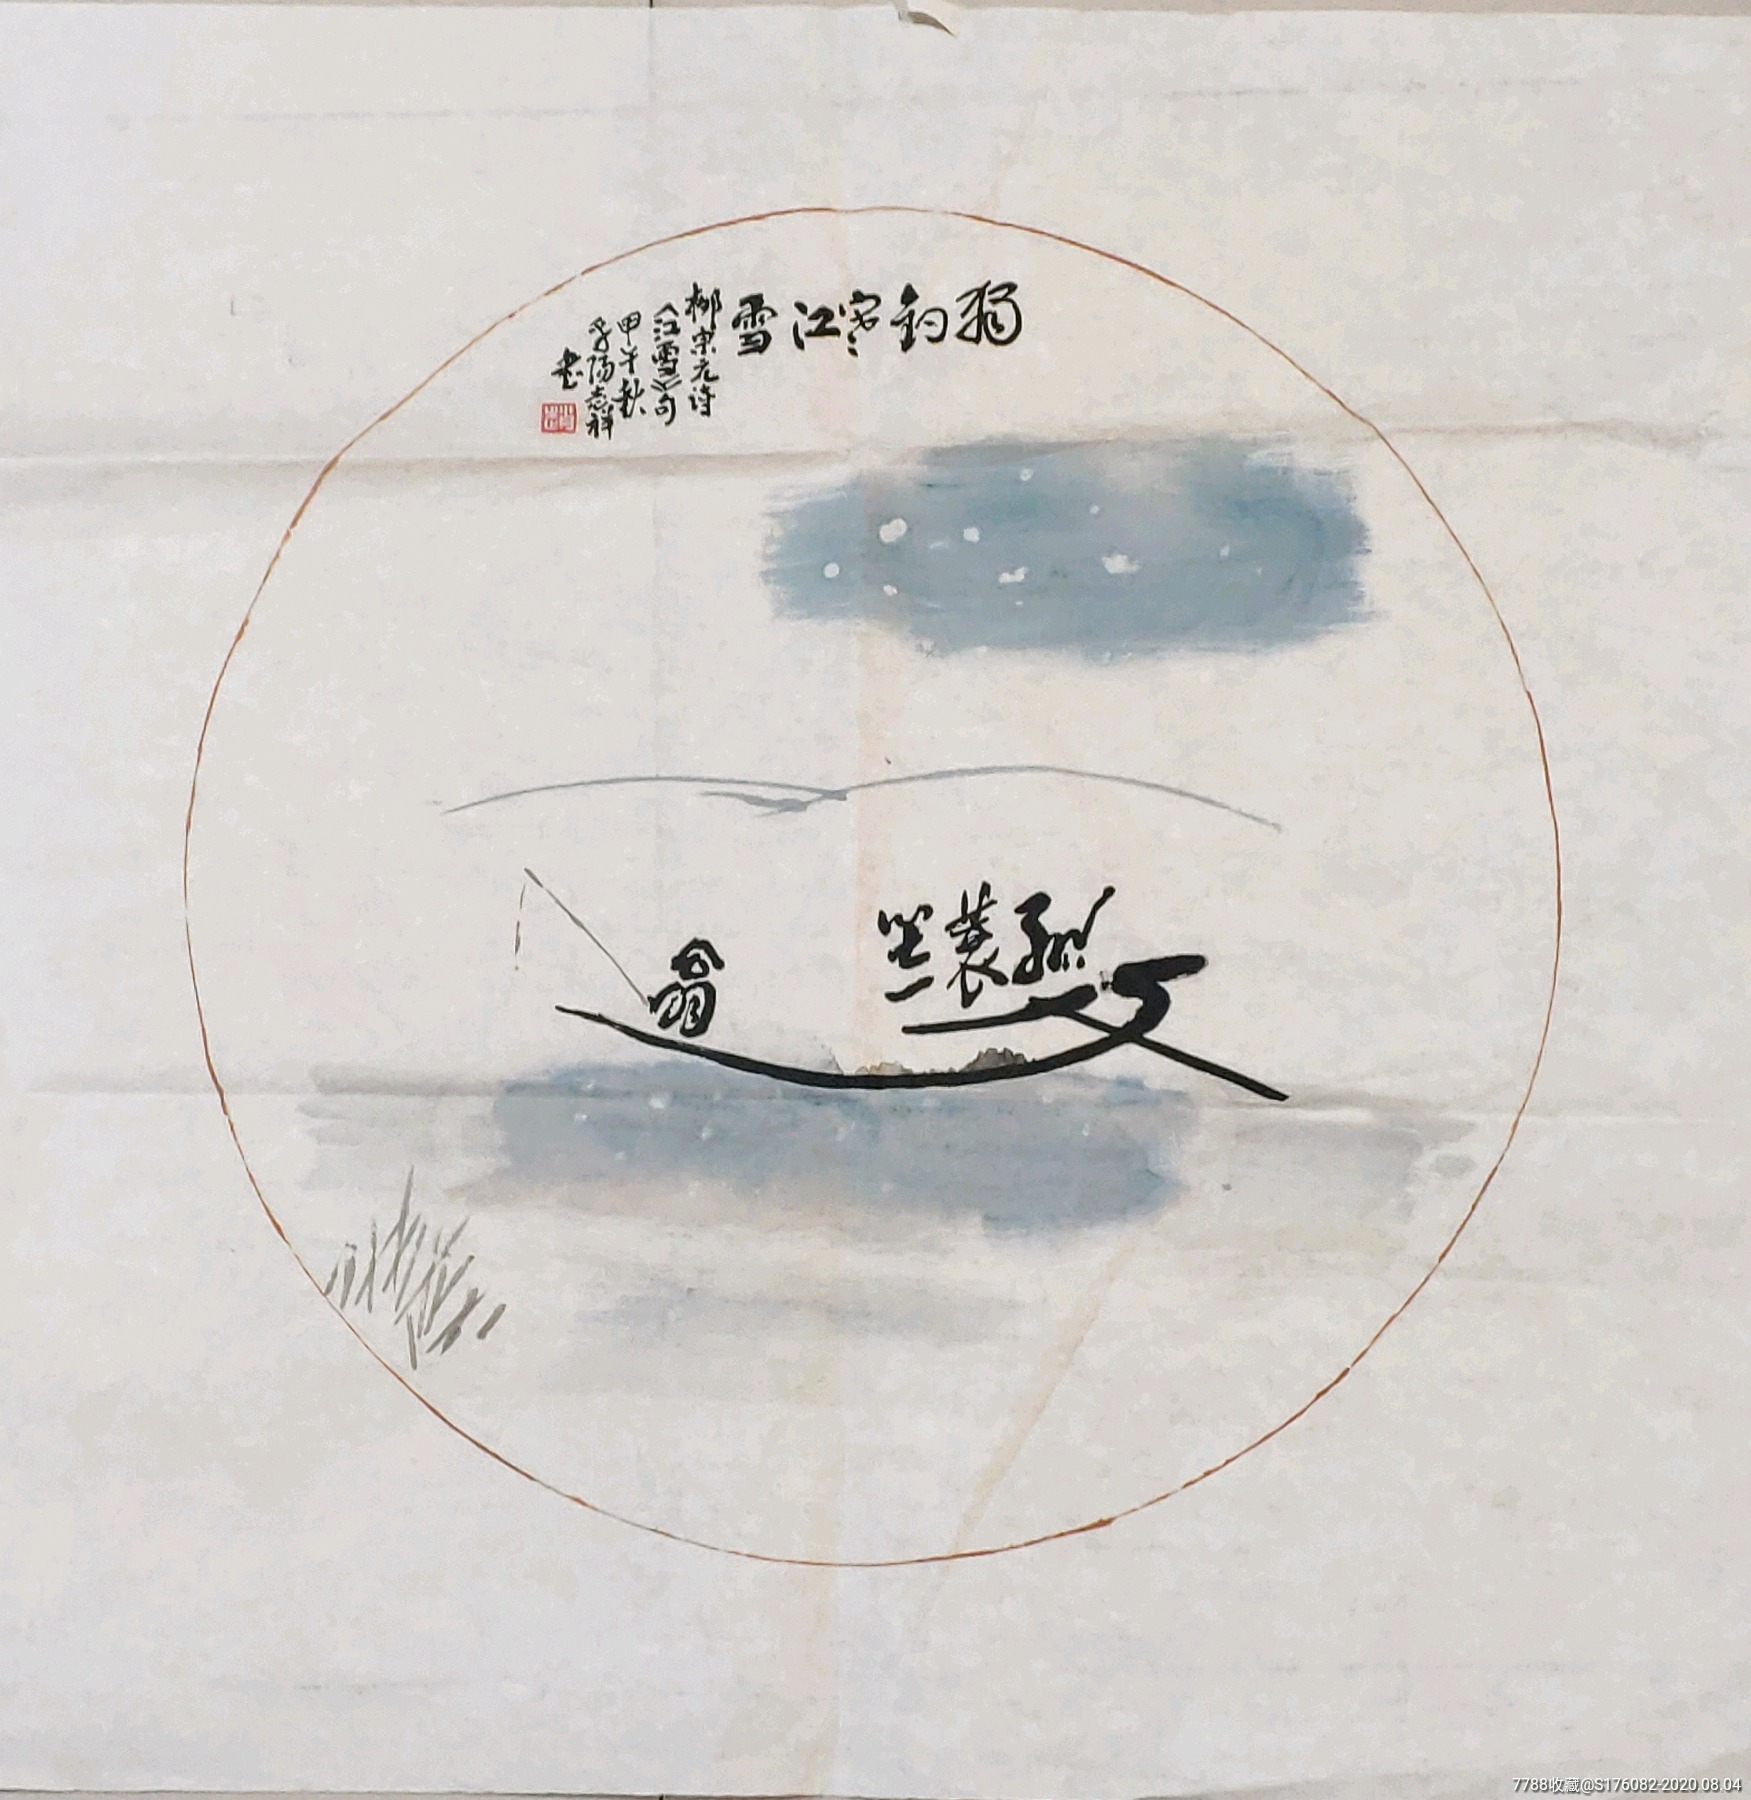 独钓寒江雪
柳宗元诗
《江雪》句
甲午秋
阳志祥
书
孤蓑笠
翁
7788收藏@S176082-2020.08.04